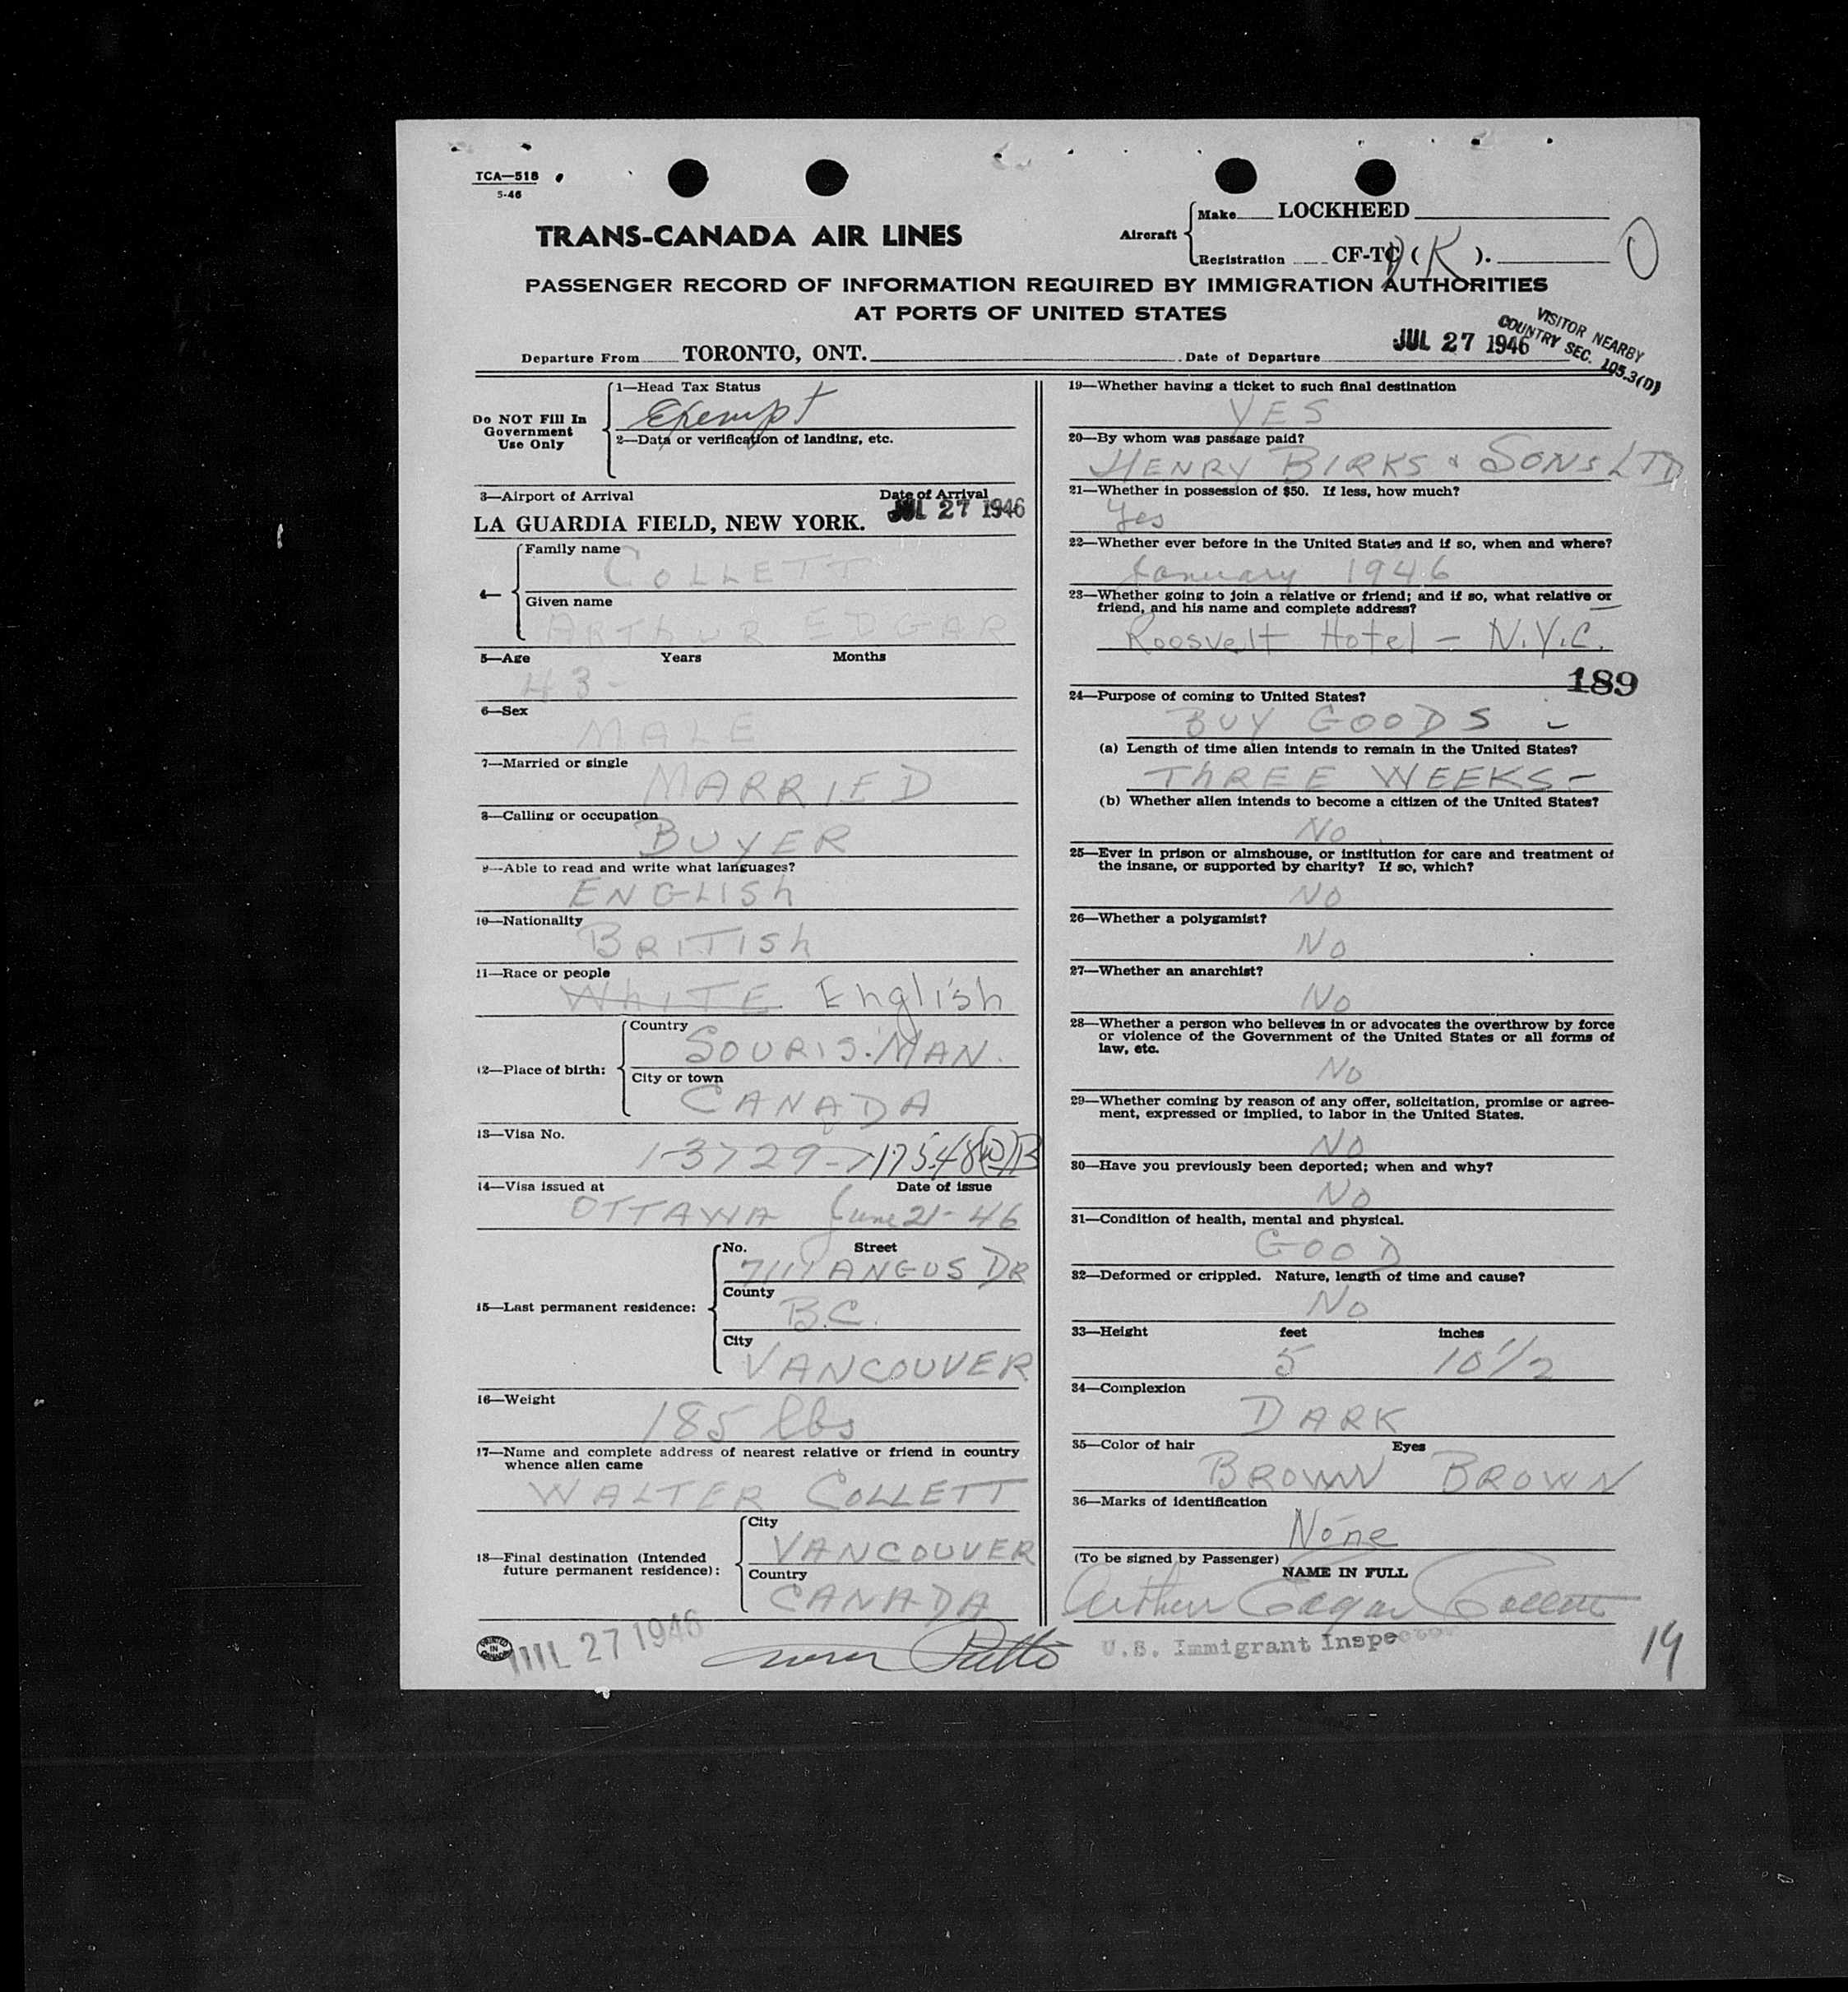 TCA—518
5-46
TRANS-CANADA AIR LINES
Aircraft
Make LOCKHEED
Registration CF-TC ( K ).
PASSENGER RECORD OF INFORMATION REQUIRED BY IMMIGRATION AUTHORITIES
AT PORTS OF UNITED STATES
VISITOR NEARBY
COUNTRY SEC. 105.3(D)
Departure From TORONTO, ONT. Date of Departure JUL 27 1946
Do NOT Fill In
Government
Use Only
1—Head Tax Status
Exempt
2—Data or verification of landing, etc.
3—Airport of Arrival Date of Arrival
LA GUARDIA FIELD, NEW YORK. JUL 27 1946
4—
Family name
COLLETT
Given name
ARTHUR EDGAR
5—Age Years Months
43 -
6—Sex
MALE
7—Married or single
MARRIED
8—Calling or occupation
BUYER
9—Able to read and write what languages?
ENGLISh
10—Nationality
BRITISh
11—Race or people
WhITE English
12—Place of birth:
Country
SOURIS. MAN.
City or town
CANADA
13—Visa No.
1-3729-
14—Visa issued at Date of issue
OTTAWA June 21-46
15—Last permanent residence:
No. Street
7111 ANGUS DR
County
B.C.
City
VANCOUVER
16—Weight
185 lbs
17—Name and complete address of nearest relative or friend in country
whence alien came
WALTER COLLETT
18—Final destination (Intended
future permanent residence):
City
VANCOUVER
Country
CANADA
19—Whether having a ticket to such final destination
YES
20—By whom was passage paid?
HENRY BIRKS & SONS LTD
21—Whether in possession of $50. If less, how much?
Yes
22—Whether ever before in the United States and if so, when and where?
January 1946
23—Whether going to join a relative or friend; and if so, what relative or
friend, and his name and complete address?
Roosvelt Hotel — N.Y.C.
189
24—Purpose of coming to United States?
BUY GOODS -
(a) Length of time alien intends to remain in the United States?
ThREE WEEKS -
(b) Whether alien intends to become a citizen of the United States?
No.
25—Ever in prison or almshouse, or institution for care and treatment of
the insane, or supported by charity? If so, which?
No
26—Whether a polygamist?
No
27—Whether an anarchist?
No
28—Whether a person who believes in or advocates the overthrow by force
or violence of the Government of the United States or all forms of
law, etc.
No
29—Whether coming by reason of any offer, solicitation, promise or agree-
ment, expressed or implied, to labor in the United States.
No
30—Have you previously been deported; when and why?
No
31—Condition of health, mental and physical.
GOOD
32—Deformed or crippled. Nature, length of time and cause?
No
33—Height feet inches
5 10 1/2
34—Complexion
DARK
35—Color of hair Eyes
BROWN BROWN
36—Marks of identification
None
(To be signed by Passenger) NAME IN FULL
Arthur Edgar Collett
PRINTED
IN
CANADA
JUL 27 1946
U.S. Immigrant Inspector
14